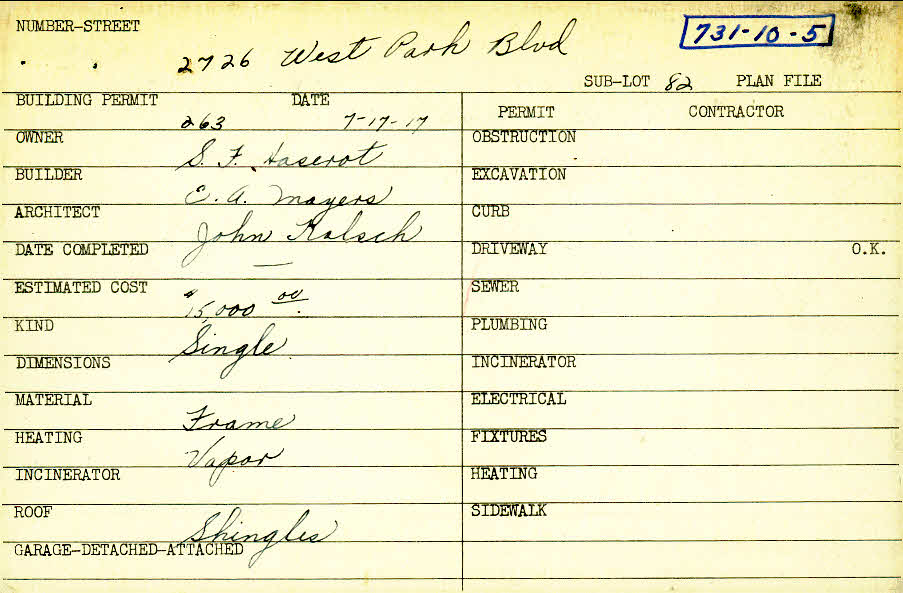 NUMBER-STREET
2726 West Park Blvd
731-10-5
SUB-LOT 82 PLAN FILE
BUILDING PERMIT DATE
263 7-17-17
PERMIT CONTRACTOR
OWNER
S. F. Haserot
OBSTRUCTION
BUILDER
E. A. Mayers
EXCAVATION
ARCHITECT
John Kalsch
CURB
DATE COMPLETED —
DRIVEWAY O.K.
ESTIMATED COST
$15,000 00
SEWER
KIND
Single
PLUMBING
DIMENSIONS
INCINERATOR
MATERIAL
Frame
ELECTRICAL
HEATING
Vapor
FIXTURES
INCINERATOR
HEATING
ROOF
Shingles
SIDEWALK
GARAGE-DETACHED-ATTACHED